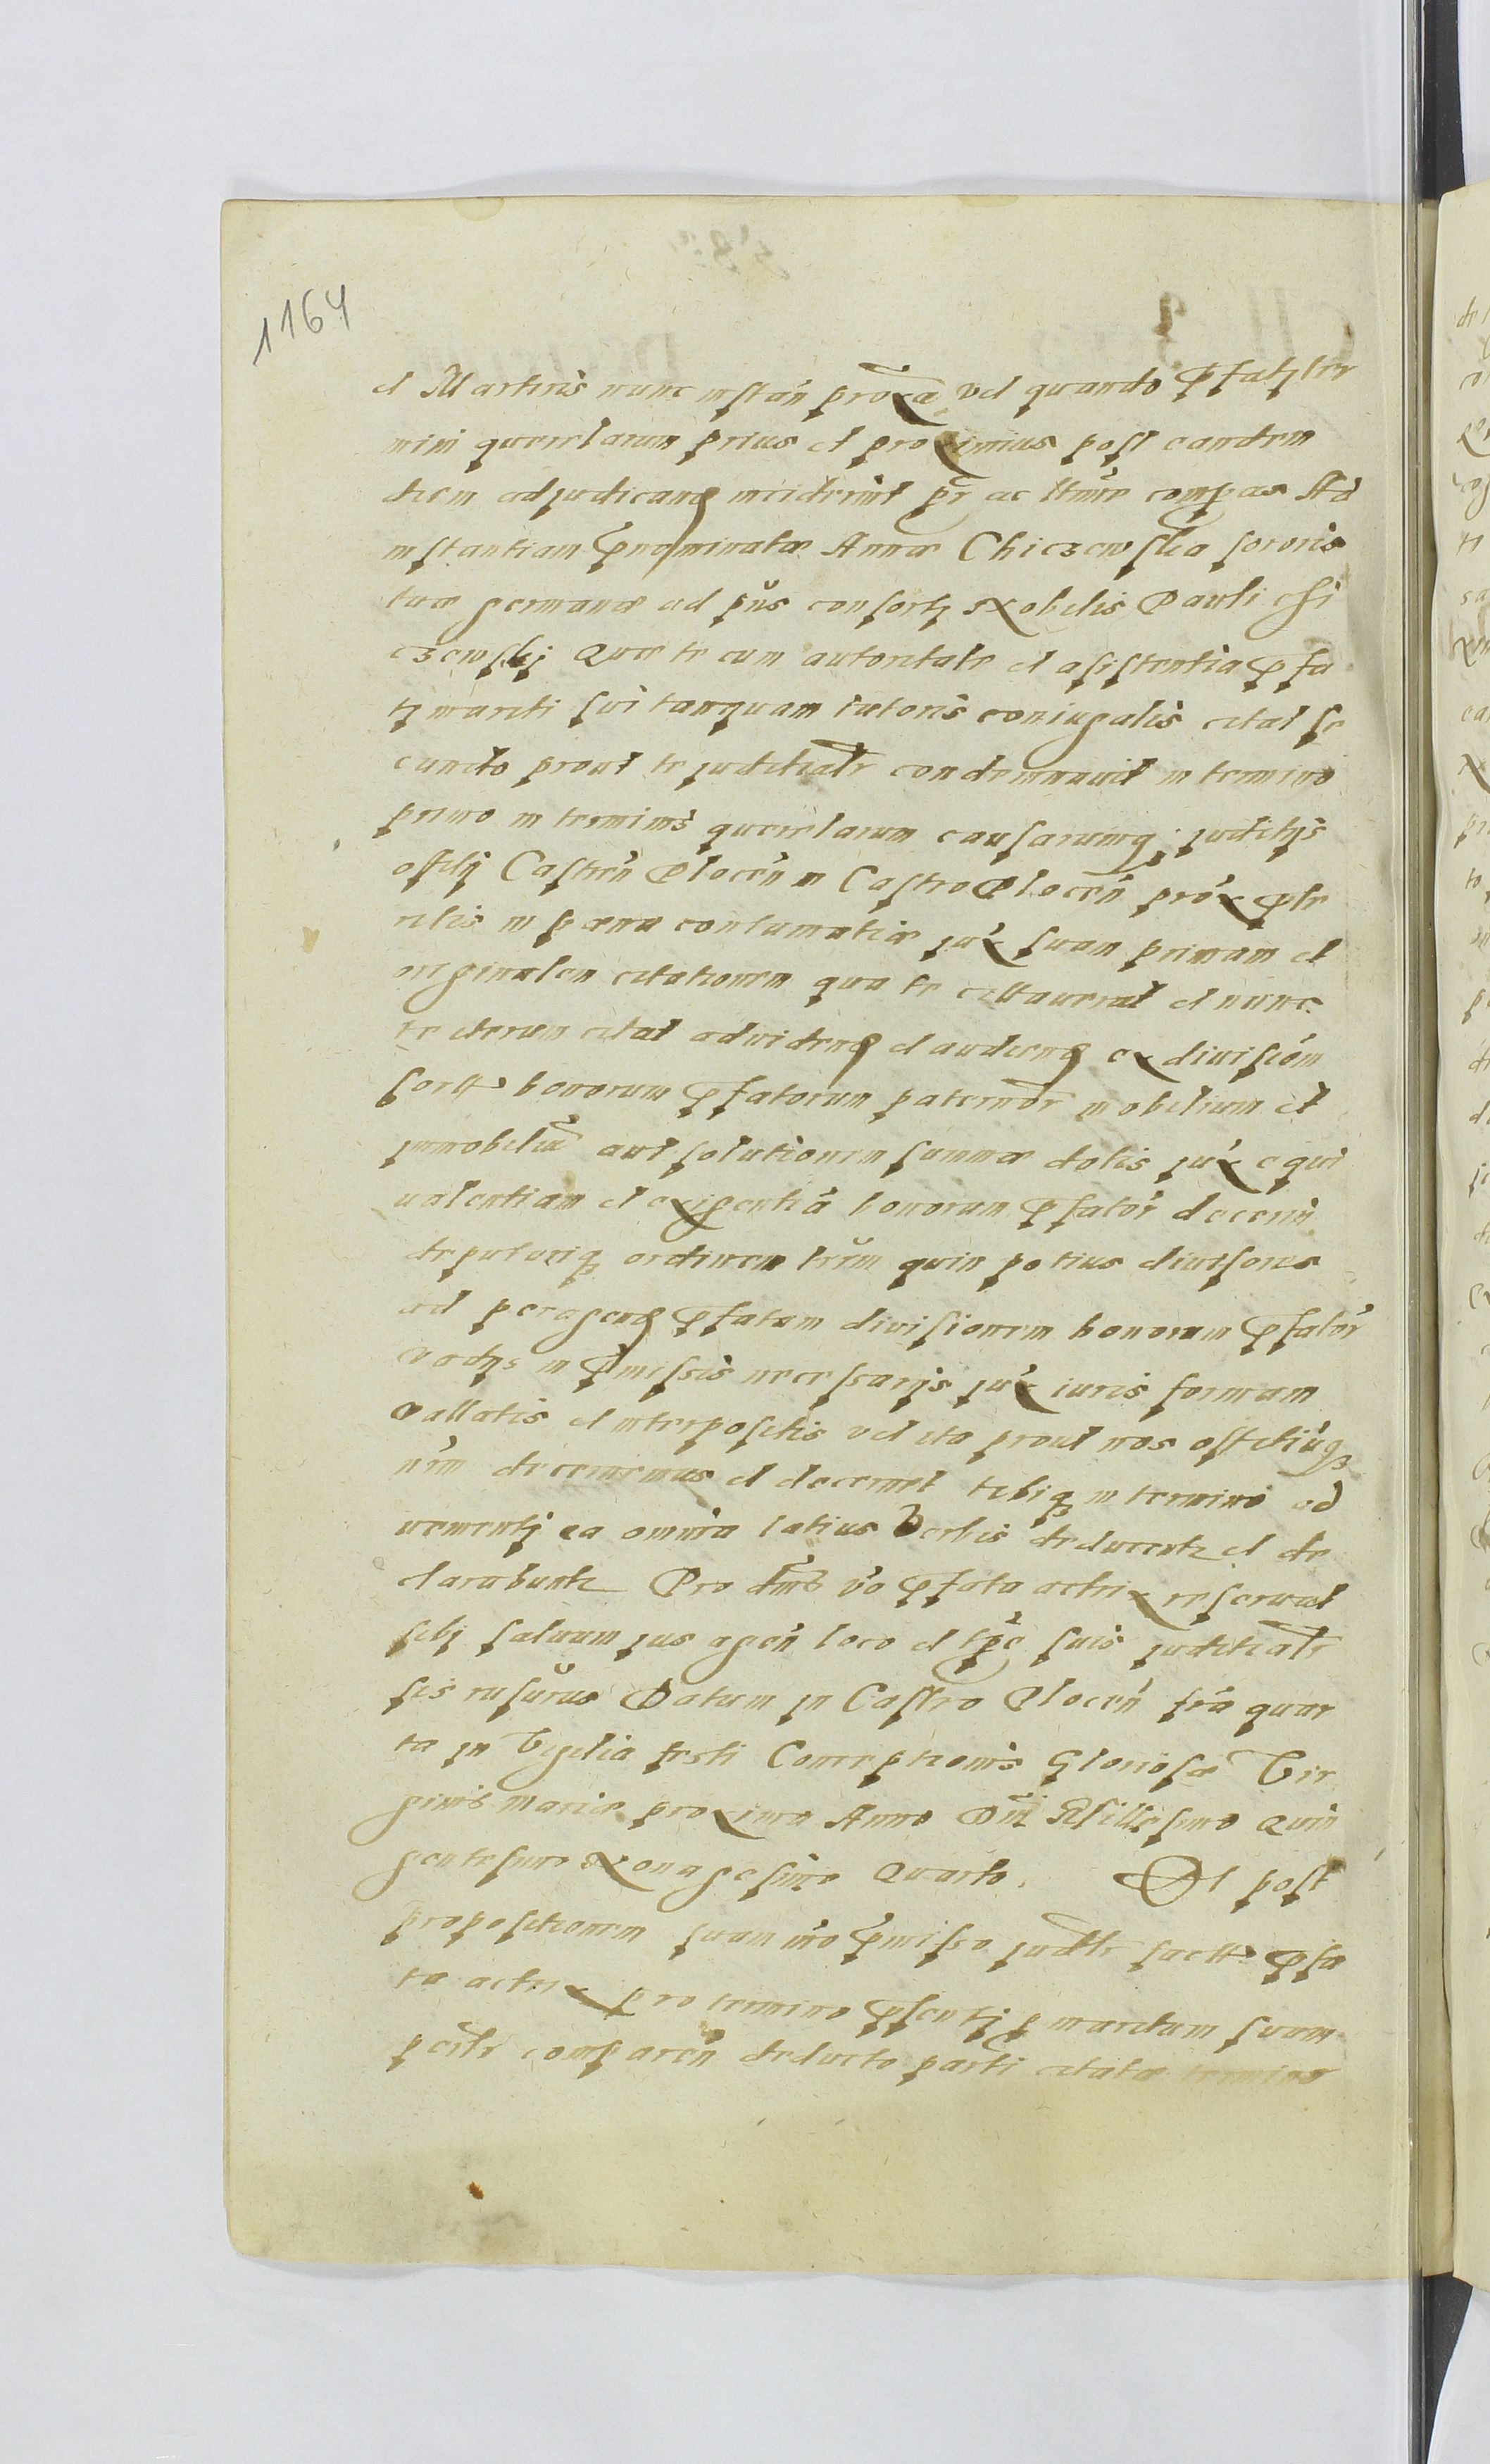 1164
et Martinis nunc instan̄ proxa vel quando p̄fatj ter
mini querelarum prius et proximius post eandem
diem adjudicand inciderint pr̄ ac ltīme compas Ad
instantiam p̄nominatæ Annæ Chiczewska sororis
tuæ germanæ ad p̄ns consortj Nobilis Pauli Chi
czewskj Quæ te cum autoritate et asistentia p̄fa
tj mariti sui tanquam tutoris coniugalis citat se
cundo prout te juditialr condemnauit in termino
primo in terminis querelarum causarumq; juditijs
offitij Castren̄ Plocen̄ in Castro Plocen̄ prox̄ pte
ritis in pæna contumatiæ jux̄ suam primam et
originalem citationem qua te cittauerat et nunc
te iterum citat advidend et audiend ex divisiōm
sortt bonorum p̄fatorum paternor̄ mobilium et
jmmobiliū aut solutionem summæ dotis jux̄ equi
ualentiam et exigentiā bonorum p̄fator̄ decerni
deputariq; ordinem trm̄ quin potius divisores
ad peragend p̄fatam divisionem bonorum p̄fator̄
vadijs in p̄missis necessarijs jux̄ iuris formam
vallatis et interpositis vel ita prout nos offitiūq;
nr̄m decernemus et decernet tibiq; in termino ad
uenientj ea omnia latius Verbis deducentr et de
clarabuntr Pro dm̄s v̄o p̄fata actrix reseruat
sibj saluum jus agen̄ loco et tp̄e suis juditialr
sis rn̄surus Datum jn Castro Plocen̄ fr̄ia quar
ta jn Vigilia festi Conceptionis Gloriosæ Vir
ginis mariæ proxima Anno Dnī Millesimo Quin
gentesimo Nonagesimo Quarto. Et post
propositionem suam mō p̄misso judlr factt p̄fa
ta actrix pro termino p̄sentj p maritum suum
pr̄lr comparen̄ deducto parti citatæ termino